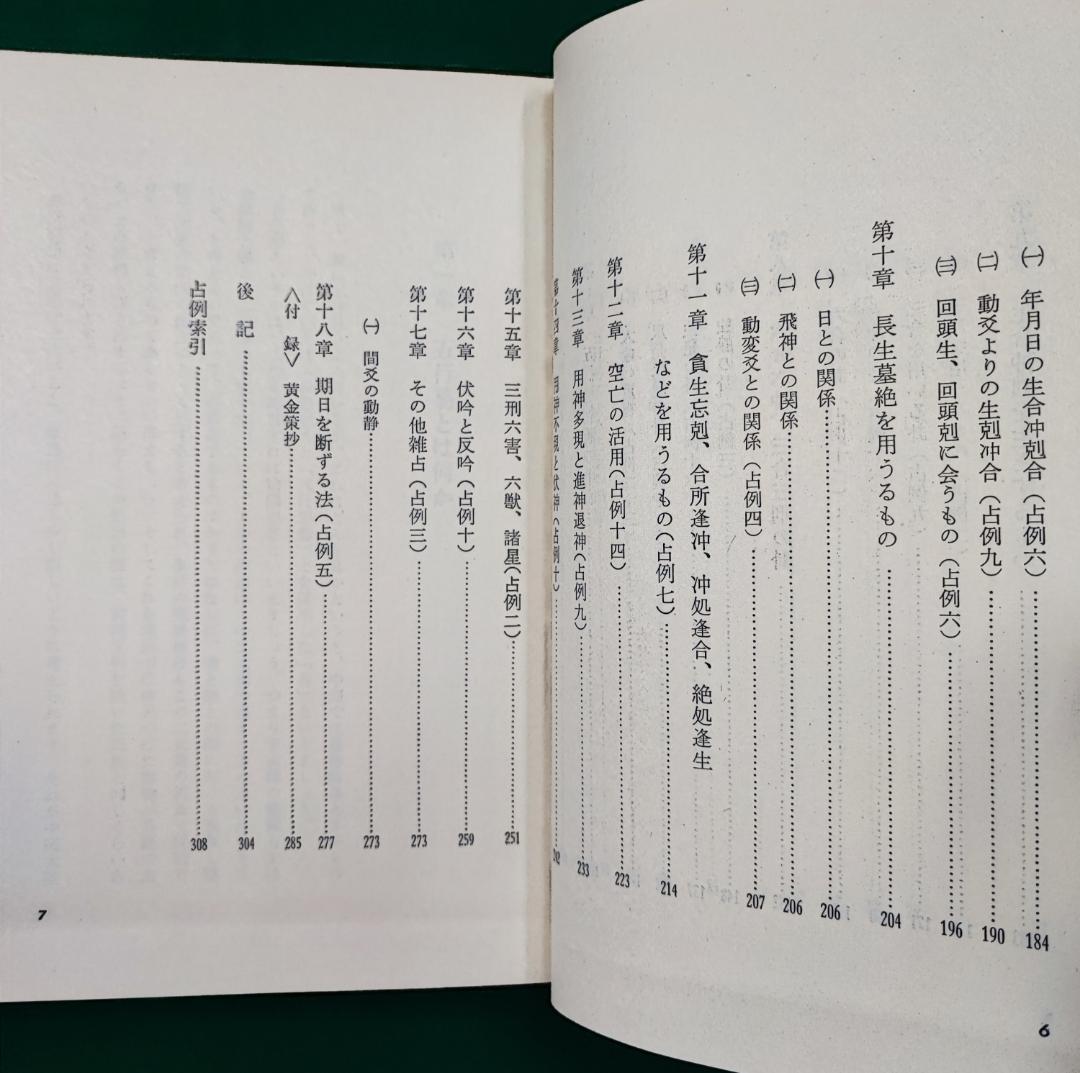 ㈠　年月日の生合冲剋合（占例六）……184
㈡　動爻よりの生剋冲合（占例九）……190
㈢　回頭生、回頭剋に会うもの（占例六）……196
第十章　長生墓絶を用うるもの……204
㈠　日との関係……206
㈡　飛神との関係……206
㈢　動変爻との関係（占例四）……207
第十一章　貪生忘剋、合所逢冲、冲処逢合、絶処逢生
などを用うるもの（占例七）……214
第十二章　空亡の活用（占例十四）……223
第十三章　用神多現と進神退神（占例九）……233
第十四章　用神不現と伏神（占例十）……242
6
第十五章　三刑六害、六獣、諸星（占例二）……251
第十六章　伏吟と反吟（占例十）……259
第十七章　その他雑占（占例三）……273
㈠　間爻の動静……273
第十八章　期日を断ずる法（占例五）……277
〈付　録〉　黄金策抄……285
後　記……304
占例索引……308
7